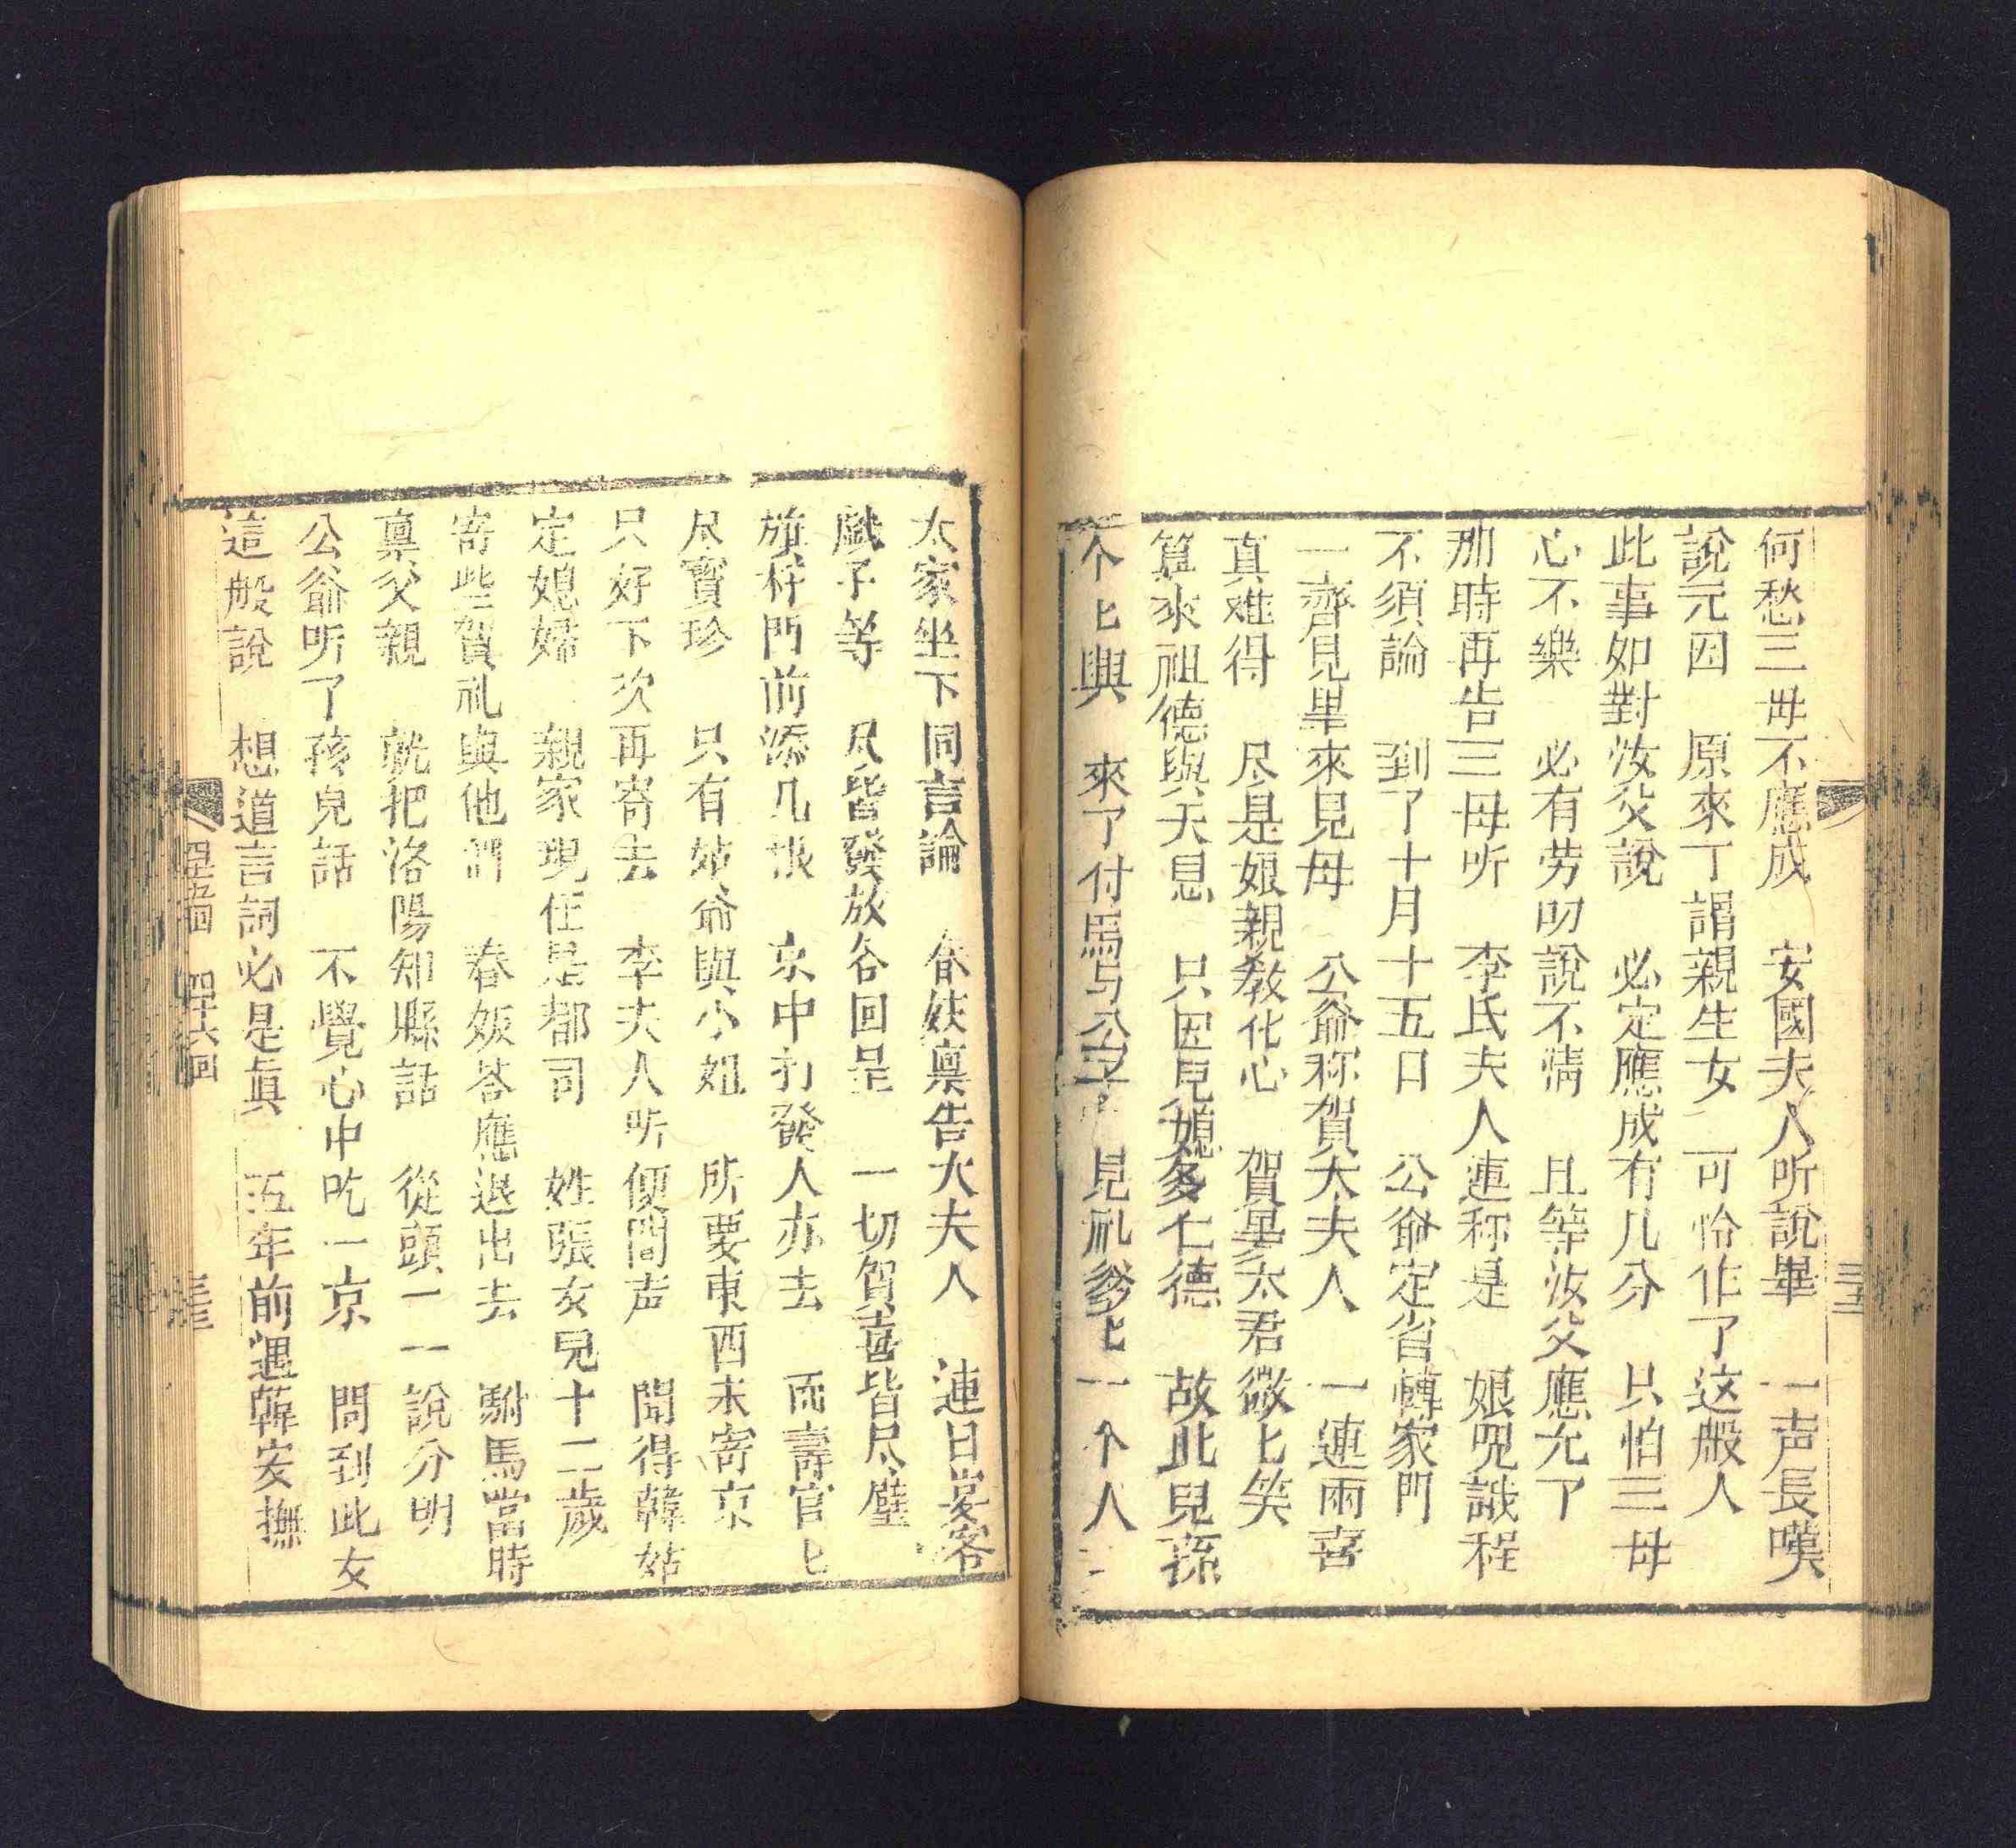 何愁三毋不應成　安國夫人听說畢　一声長嘆
說元因　原來丁謂親生女　可怜作了这般人
此事如對汝父說　必定應成有几分　只怕三母
心不樂　必有劳叨說不情　且等汝父應允了
那時再告三母听　李氏夫人連称是　娘児議程
不須論　到了十月十五日　公爺定省轉家門
一齊見畢來見母　公爺称賀大夫人　一連兩喜
真难得　尽是娘親教化心　賀畢太君微匕笑
算來祖德與天恩　只因見媳多仁德　故此兒孫
个匕興　來了付馬与公子　見礼爹匕一个人
大家坐下同言論　春妓禀告大夫人　連日宴客
戯子等　尽皆發放各回呈　一切賀喜皆尽璧
旗杆門前添几根　京中打發人亦去　而壽官匕
尽寳珍　只有姑爺與小姐　所要東西未寄京
只好下次再寄去　李夫人听便開声　聞得韓姑
定媳婦　親家現任是都司　姓張女兒十二歲
寄些賀礼與他們　春妓答應退出去　駙馬當時
禀父親　就把洛陽知縣話　從頭一一說分明
公爺听了孩兒話　不覺心中吃一京　問到此女
這般說　想道言詞必是真　五年前遇韓安撫